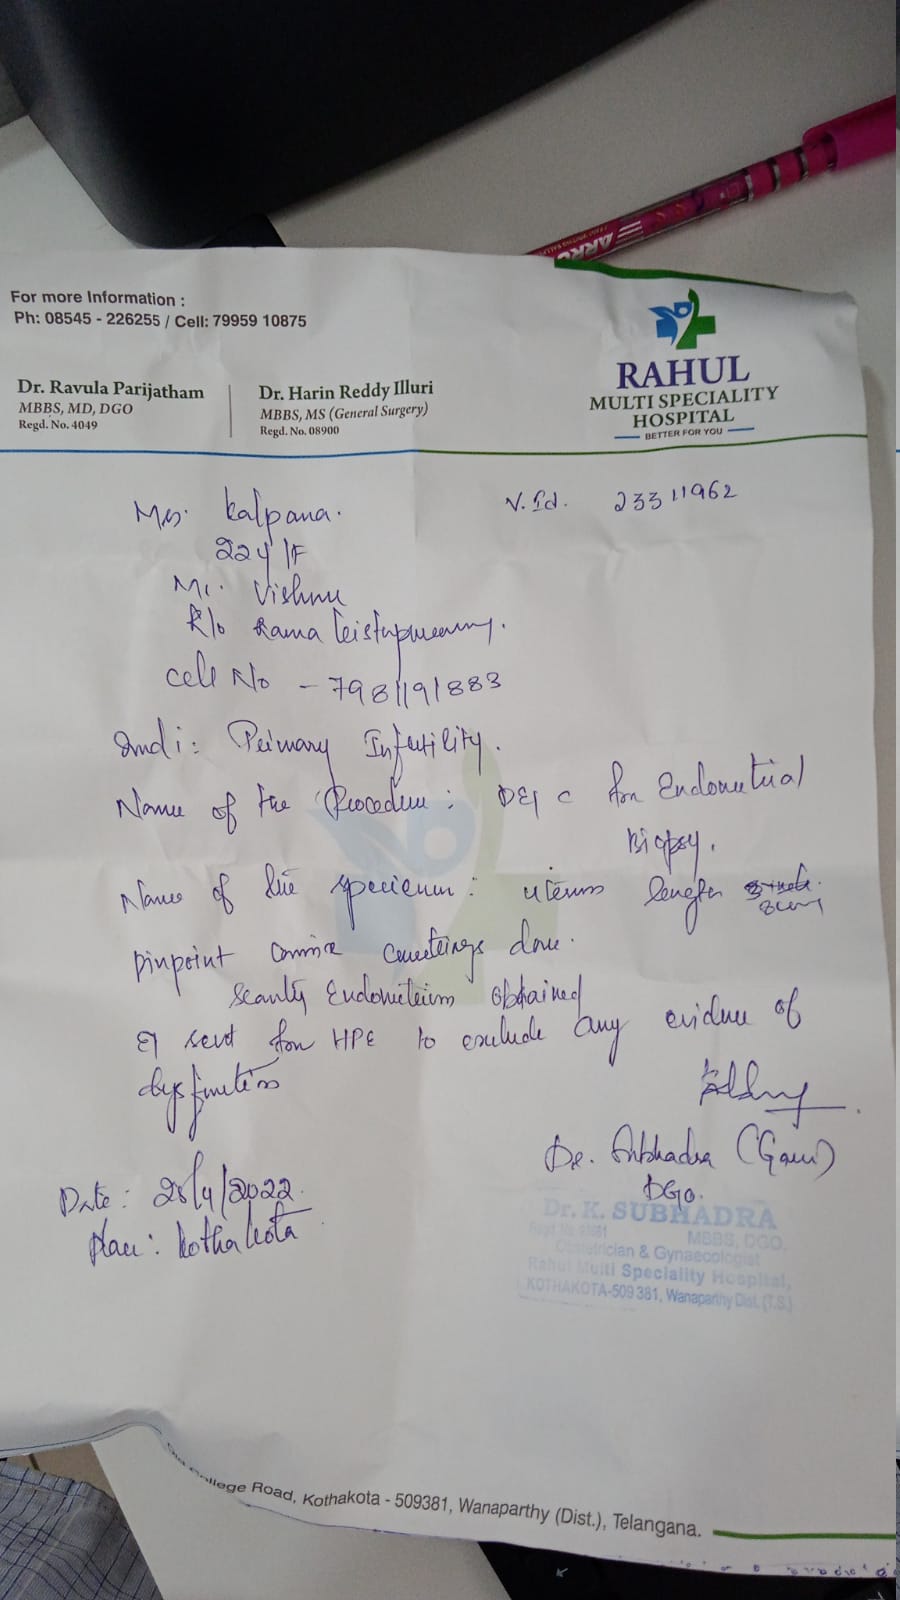 ARRO
For more Information :
Ph: 08545 - 226255 / Cell: 79959 10875
Dr. Ravula Parijatham
MBBS, MD, DGO
Regd. No. 4049
Dr. Harin Reddy Illuri
MBBS, MS (General Surgery)
Regd. No. 08900
RAHUL
MULTI SPECIALITY
HOSPITAL
BETTER FOR YOU
Mrs. Kalpana.
V. Id. 23311962
22y/F
Mr. Vishnu
R/o Rama
Cell No - 7981191883
Indi: Primary Infertility.
Name of the Procedure: D & C for Endometrial
Biopsy.
Name of the specimen: uterus length
pinpoint curettings done.
Scanty Endometrium obtained
& sent for HPE to exclude any evidence of
dysfunction
Dr. Subhadra
DGO.
Date: 28/4/2022
Place: Kothakota
Dr. K. SUBHADRA
MBBS, DGO
Obstetrician & Gynaecologist
Rahul Multi Speciality Hospital,
KOTHAKOTA-509 381, Wanaparthy Dist. (T.S.)
College Road, Kothakota - 509381, Wanaparthy (Dist.), Telangana.